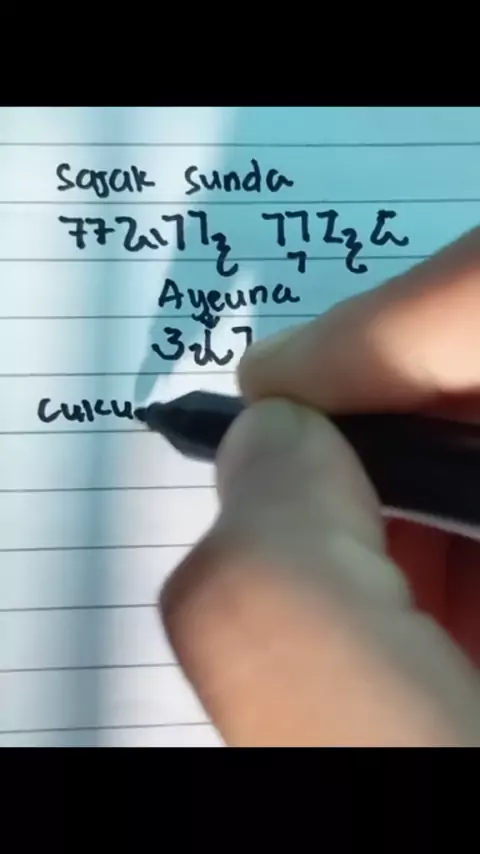 Sajak Sunda
ᮞᮏᮊ᮪ ᮞᮥᮔ᮪ᮓ
Ayeuna
ᮃᮚᮩ
Cuku